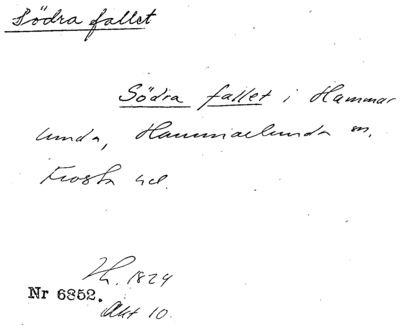 Södra fallet
Södra fallet i Hammar
lunda, Hammarlunda sn.
Frosta hd.
Lh. 1824
Nr 6852.
Akt 10.